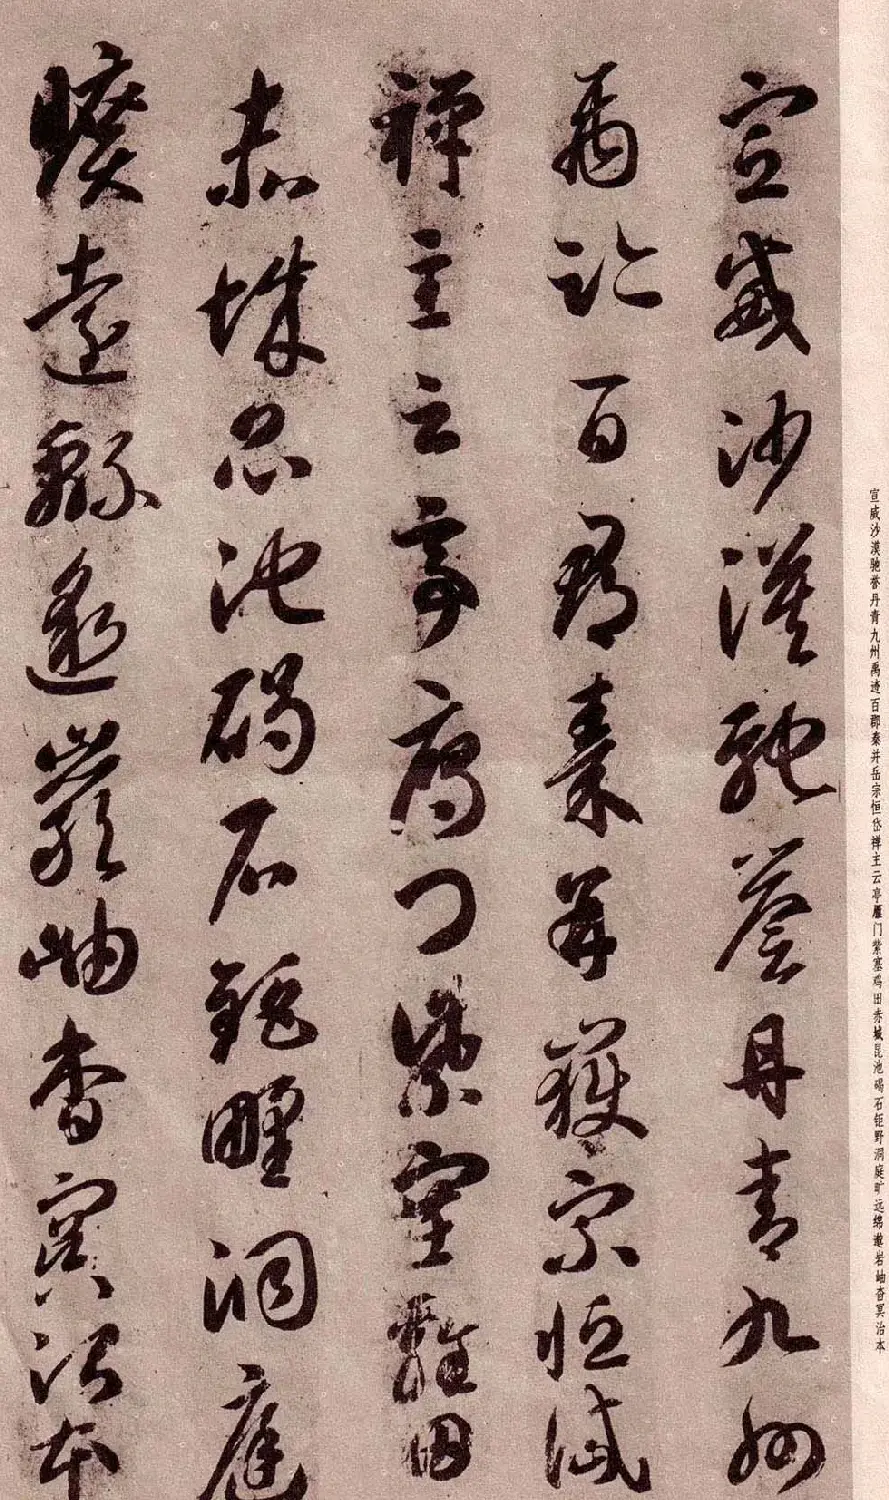 宣威沙漠驰誉丹青九州禹迹百郡秦并岳宗恒岱禅主云亭雁门紫塞鸡田赤城昆池碣石钜野洞庭旷远绵邈岩岫杳冥治本
宣威沙漠馳譽丹青九州
禹跡百郡秦并嶽宗恒岱
禪主云亭雁門紫塞雞田
赤城昆池碣石鉅野洞庭
曠遠綿邈巖岫杳冥治本